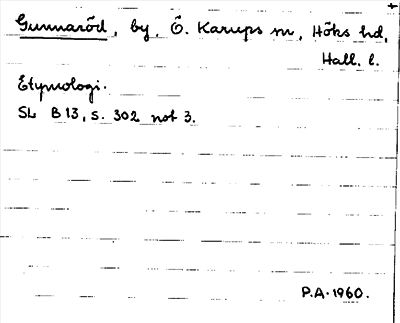 Gunnaröd, by, Ö. Karups sn, Höks hd,
Hall. l.
Etymologi.
SL B 13, s. 302 not 3.
P.A. 1960.